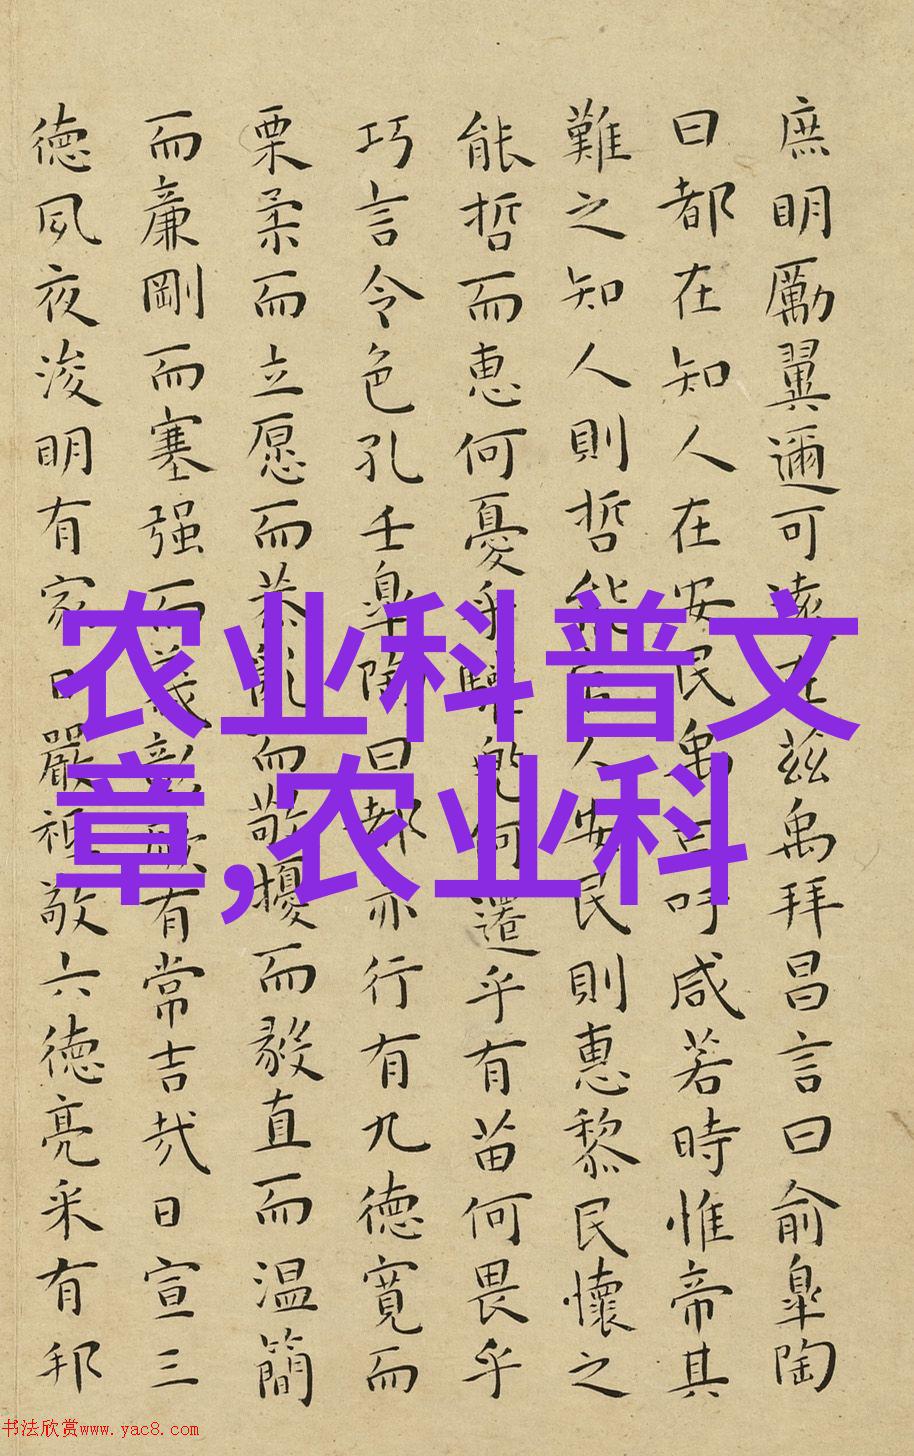 庶明勵翼邇可遠在茲禹拜昌言曰俞皋陶
曰都在知人在安民禹曰吁咸若時惟帝其
難之知人則哲能官人安民則惠黎民懷之
能哲而惠何憂乎驩兜何遷乎有苗何畏乎
巧言令色孔壬皋陶曰都亦行有九德寬而
栗柔而立愿而恭亂而敬擾而毅直而温簡
而廉剛而塞强而義彰厥有常吉哉日宣三
德夙夜浚明有家日嚴祗敬六德亮采有邦
农业科普文
章,农业科
书法欣赏www.yac8.com